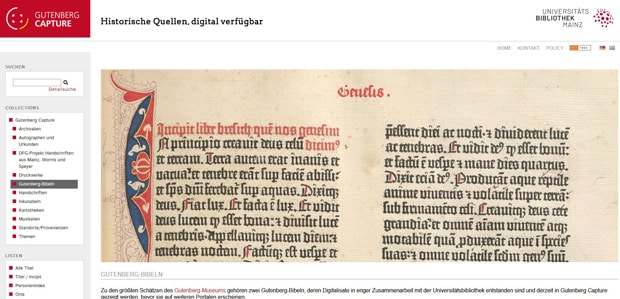 GUTENBERG
CAPTURE
Historische Quellen, digital verfügbar
UNIVERSITÄTS
BIBLIOTHEK
MAINZ
HOME KONTAKT POLICY
SUCHEN
Detailsuche
COLLECTIONS
Gutenberg Capture
Archivalien
Autographen und
Urkunden
DFG-Projekt Handschriften
aus Mainz, Worms und
Speyer
Druckwerke
Gutenberg-Bibeln
Handschriften
Inkunabeln
Kartotheken
Musikalien
Standorte/Provenienzen
Themen
LISTEN
Alle Titel
Titel / Incipit
Personenindex
Orte
Genesis.
Incipit liber bresich quem nos genesim
In principio creavit deus celum dicimus
et terram. Terra autem erat inanis et
vacua: et tenebre erant super faciem abissi:
et spiritus domini ferebatur super aquas. Dixitque
deus. Fiat lux. Et facta est lux. Et vidit
deus lucem quod esset bona: et divisit lucem
a tenebris. appellavitque lucem diem et
tenebras noctem.
preessent diei ac nocti: et dividerent lucem
ac tenebras. Et vidit deus quod esset bonum:
et factum est vespere et mane dies quartus.
Dixit etiam deus. Producant aque reptile
anime viventis et volatile super terram:
sub firmamento celi. Creavitque deus cete
grandia, et omnem animam viventem
GUTENBERG-BIBELN
Zu den größten Schätzen des Gutenberg-Museums gehören zwei Gutenberg-Bibeln, deren Digitalisate in enger Zusammenarbeit mit der Universitätsbibliothek entstanden sind und derzeit in Gutenberg Capture
gezeigt werden, bevor sie auf weiteren Portalen erscheinen.